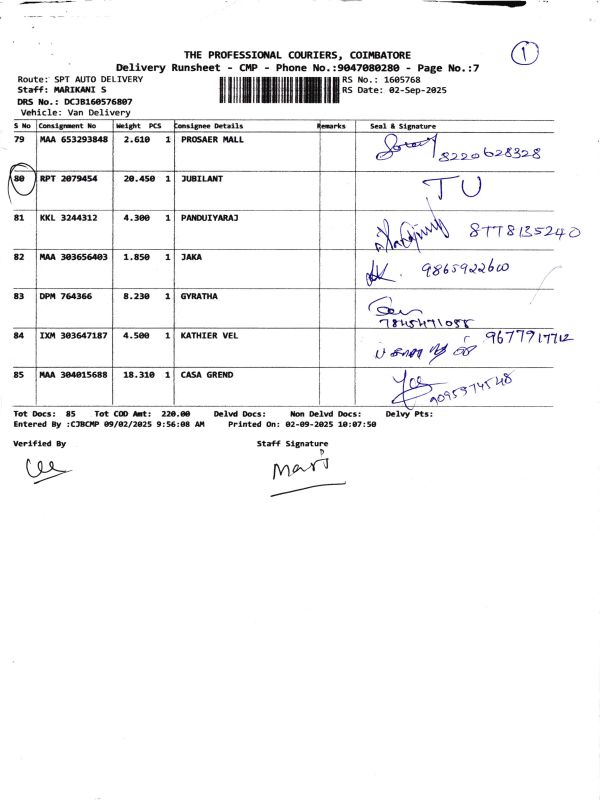 THE PROFESSIONAL COURIERS, COIMBATORE
1
Delivery Runsheet - CMP - Phone No.:9047080280 - Page No.:7
Route: SPT AUTO DELIVERY RS No.: 1605768
Staff: MARIKANI S RS Date: 02-Sep-2025
DRS No.: DCJB160576807
Vehicle: Van Delivery
S No Consignment No Weight PCS Consignee Details Remarks Seal & Signature
79 MAA 653293848 2.610 1 PROSAER MALL 8220628328
80 RPT 2079454 20.450 1 JUBILANT TU
81 KKL 3244312 4.300 1 PANDUIYARAJ 8778135240
82 MAA 303656403 1.850 1 JAKA 9865922600
83 DPM 764366 8.230 1 GYRATHA
7845471055
84 IXM 303647187 4.500 1 KATHIER VEL 9677917712
85 MAA 304015688 18.310 1 CASA GREND 9095374548
Tot Docs: 85 Tot COD Amt: 220.00 Delvd Docs: Non Delvd Docs: Delvy Pts:
Entered By :CJBCMP 09/02/2025 9:56:08 AM Printed On: 02-09-2025 10:07:50
Verified By Staff Signature
Mari